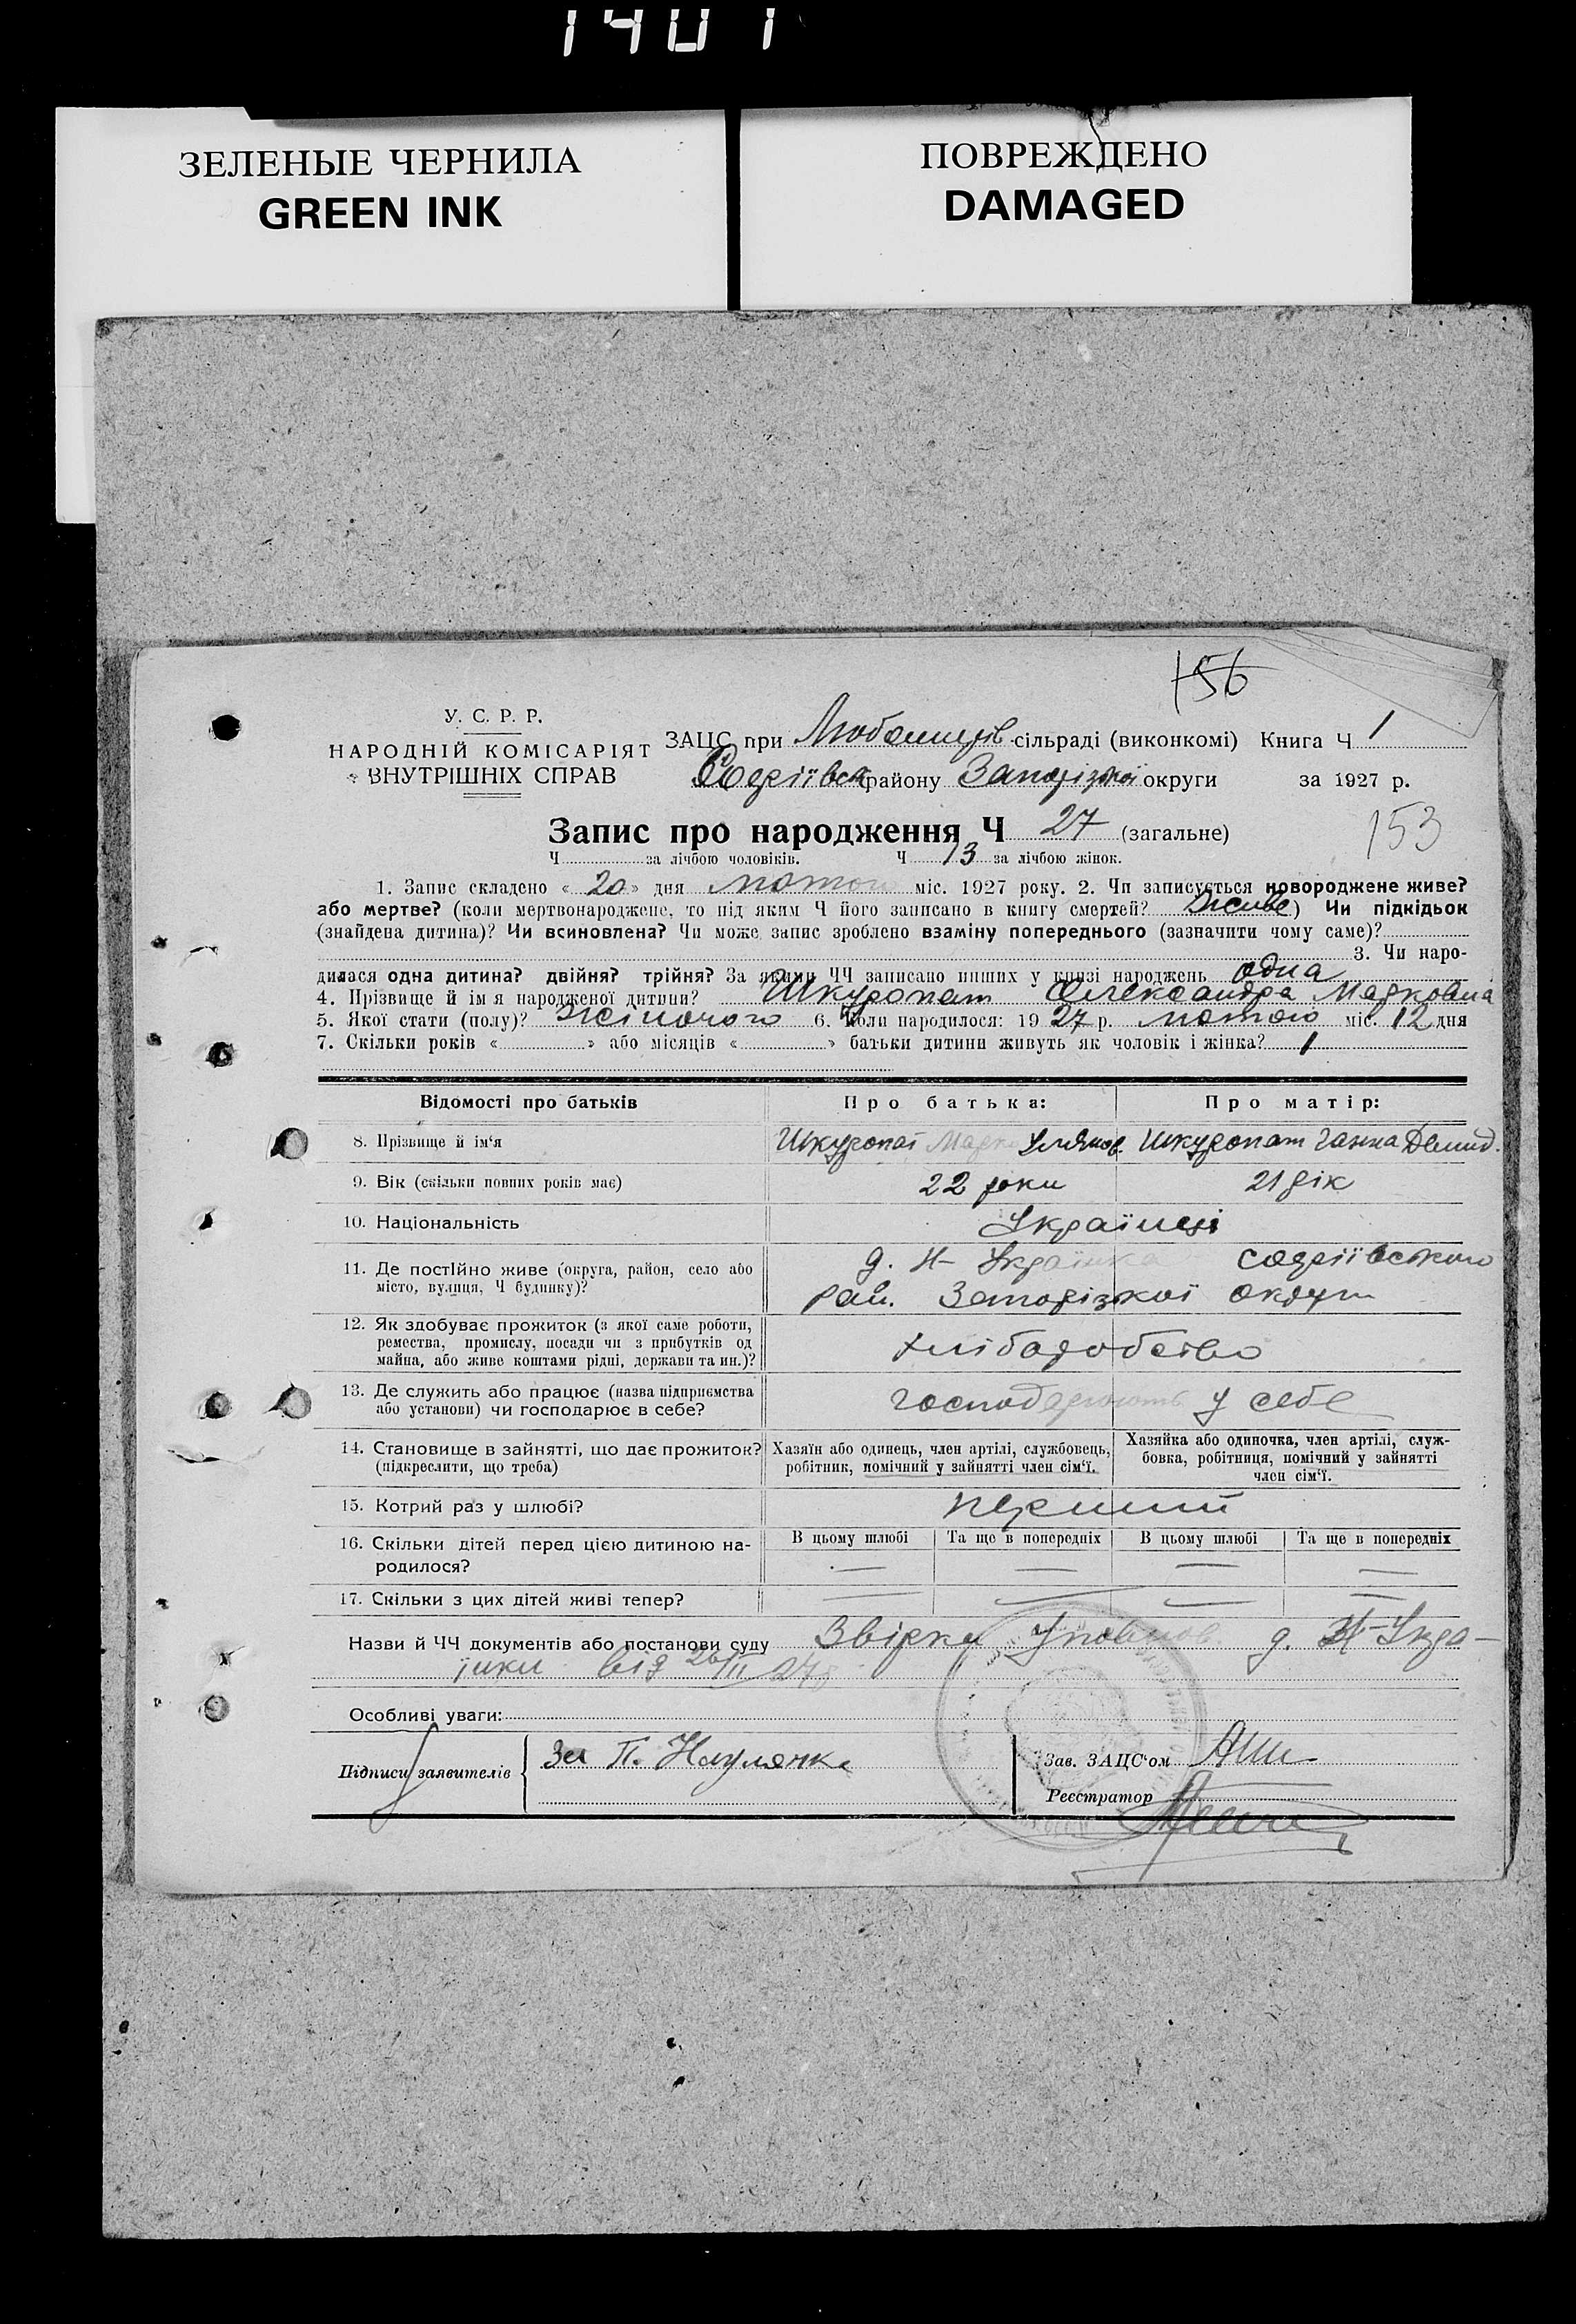 1401
ЗЕЛЕНЫЕ ЧЕРНИЛА
GREEN INK
ПОВРЕЖДЕНО
DAMAGED
156
У. С. Р. Р.
НАРОДНІЙ КОМІСАРІЯТ
ВНУТРІШНІХ СПРАВ
ЗАЦС при сільраді (виконкомі) Книга Ч 1
району Запорізької округи за 1927 р.
Запис про народження Ч 27 (загальне)
153
Ч за лічбою чоловіків. Ч 13 за лічбою жінок.
1. Запис складено « 20 » дня лютого міс. 1927 року. 2. Чи записується новороджене живе?
або мертве? (коли мертвонароджене, то під яким Ч його записано в книгу смертей? живе) Чи підкідьок
(знайдена дитина)? Чи всиновлена? Чи може запис зроблено взаміну попереднього (зазначити чому саме)?
3. Чи наро-
дилася одна дитина? двійня? трійня? За якими ЧЧ записано инших у книзі народжень одна
4. Прізвище й ім я народженої дитини? Шкуропат Олександра Марковна
5. Якої стати (полу)? жіночого 6. Коли народилося: 19 27 р. лютого міс. 12 дня
7. Скільки років « » або місяців « » батьки дитини живуть як чоловік і жінка? 1
Відомості про батьків
Про батька:
Про матір:
8. Прізвище й ім'я
Шкуропат Марко Улянов.
Шкуропат Ганна Демид.
9. Вік (скільки повних років має)
22 роки
21 рік
10. Національність
Українці
11. Де постійно живе (округа, район, село або
місто, вулиця, Ч будинку)?
д. Н-Українка Софіївського
рай. Запорізкої округи
12. Як здобуває прожиток (з якої саме роботи,
ремества, промислу, посади чи з прибутків од
майна, або живе коштами рідні, держави та ин.)?
хліборобство
13. Де служить або працює (назва підприємства
або установи) чи господарює в себе?
господарюють у себе
14. Становище в зайнятті, що дає прожиток?
(підкреслити, що треба)
Хазяїн або одинець, член артілі, службовець,
робітник, помічний у зайнятті член сім'ї.
Хазяйка або одиночка, член артілі, служ-
бовка, робітниця, помічний у зайнятті
член сім'ї.
15. Котрий раз у шлюбі?
перший
16. Скільки дітей перед цією дитиною на-
родилося?
В цьому шлюбі
Та ще в попередніх
В цьому шлюбі
Та ще в попередніх
— — — —
17. Скільки з цих дітей живі тепер?
— — — —
Назви й ЧЧ документів або постанови суду Звірка Уповнов. д. Н-Укра-
їнки від
Особливі уваги:
Підписи заявителів
За П.
Зав. ЗАЦС'ом
Реєстратор